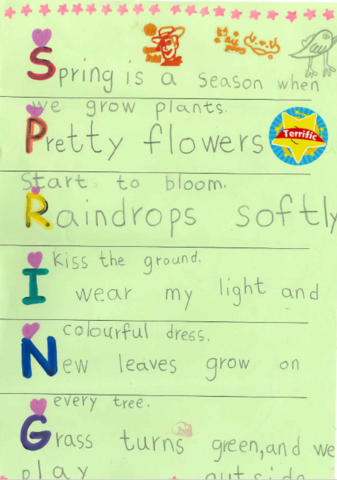 Spring is a season when
we grow plants.
Pretty flowers
Terrific
Start to bloom.
Raindrops softly
Kiss the ground.
I wear my light and
colourful dress.
New leaves grow on
every tree.
Grass turns green, and we
play outside